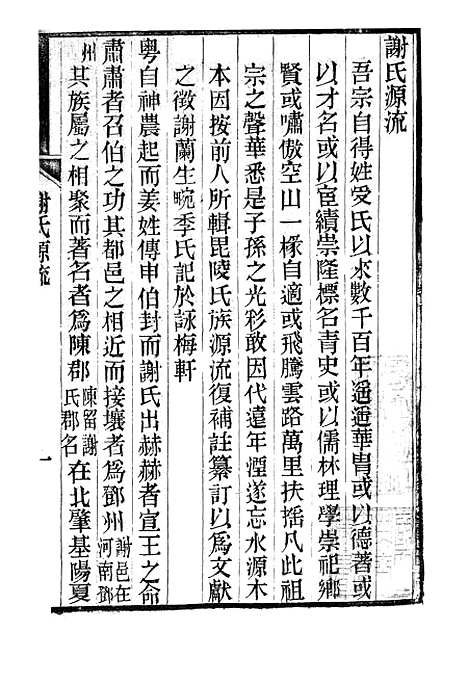 謝氏源流
吾宗自得姓受氏以來數千百年遥遥華胄或以德著或
以才名或以宦績崇隆標名青史或以儒林理學崇祀鄉
賢或嘯傲空山一椽自適或飛騰雲路萬里扶摇凡此祖
宗之聲華悉是子孫之光彩敢因代遠年湮遂忘水源木
本因按前人所輯毘陵氏族源流復補註纂訂以爲文獻
之徵謝蘭生畹季氏記於詠梅軒
粤自神農起而姜姓傳申伯封而謝氏出赫赫者宣王之命
肅肅者召伯之功其都邑之相近而接壤者爲鄧州謝邑在河南鄧
州其族屬之相聚而著名者爲陳郡陳留謝氏郡名在北肇基陽夏
謝氏源流
一